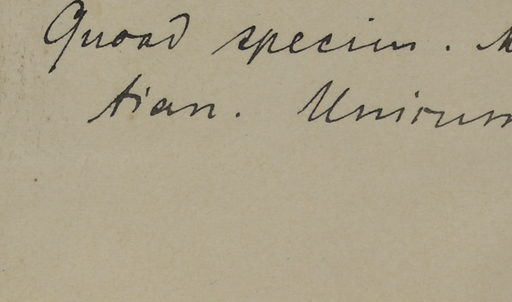 Quoad speciem. M
tian. Unicum